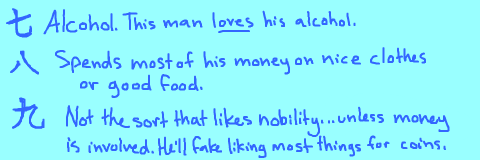 七 Alcohol. This man loves his alcohol.
八 Spends most of his money on nice clothes
or good food.
九 Not the sort that likes nobility...unless money
is involved. He'll fake liking most things for coins.